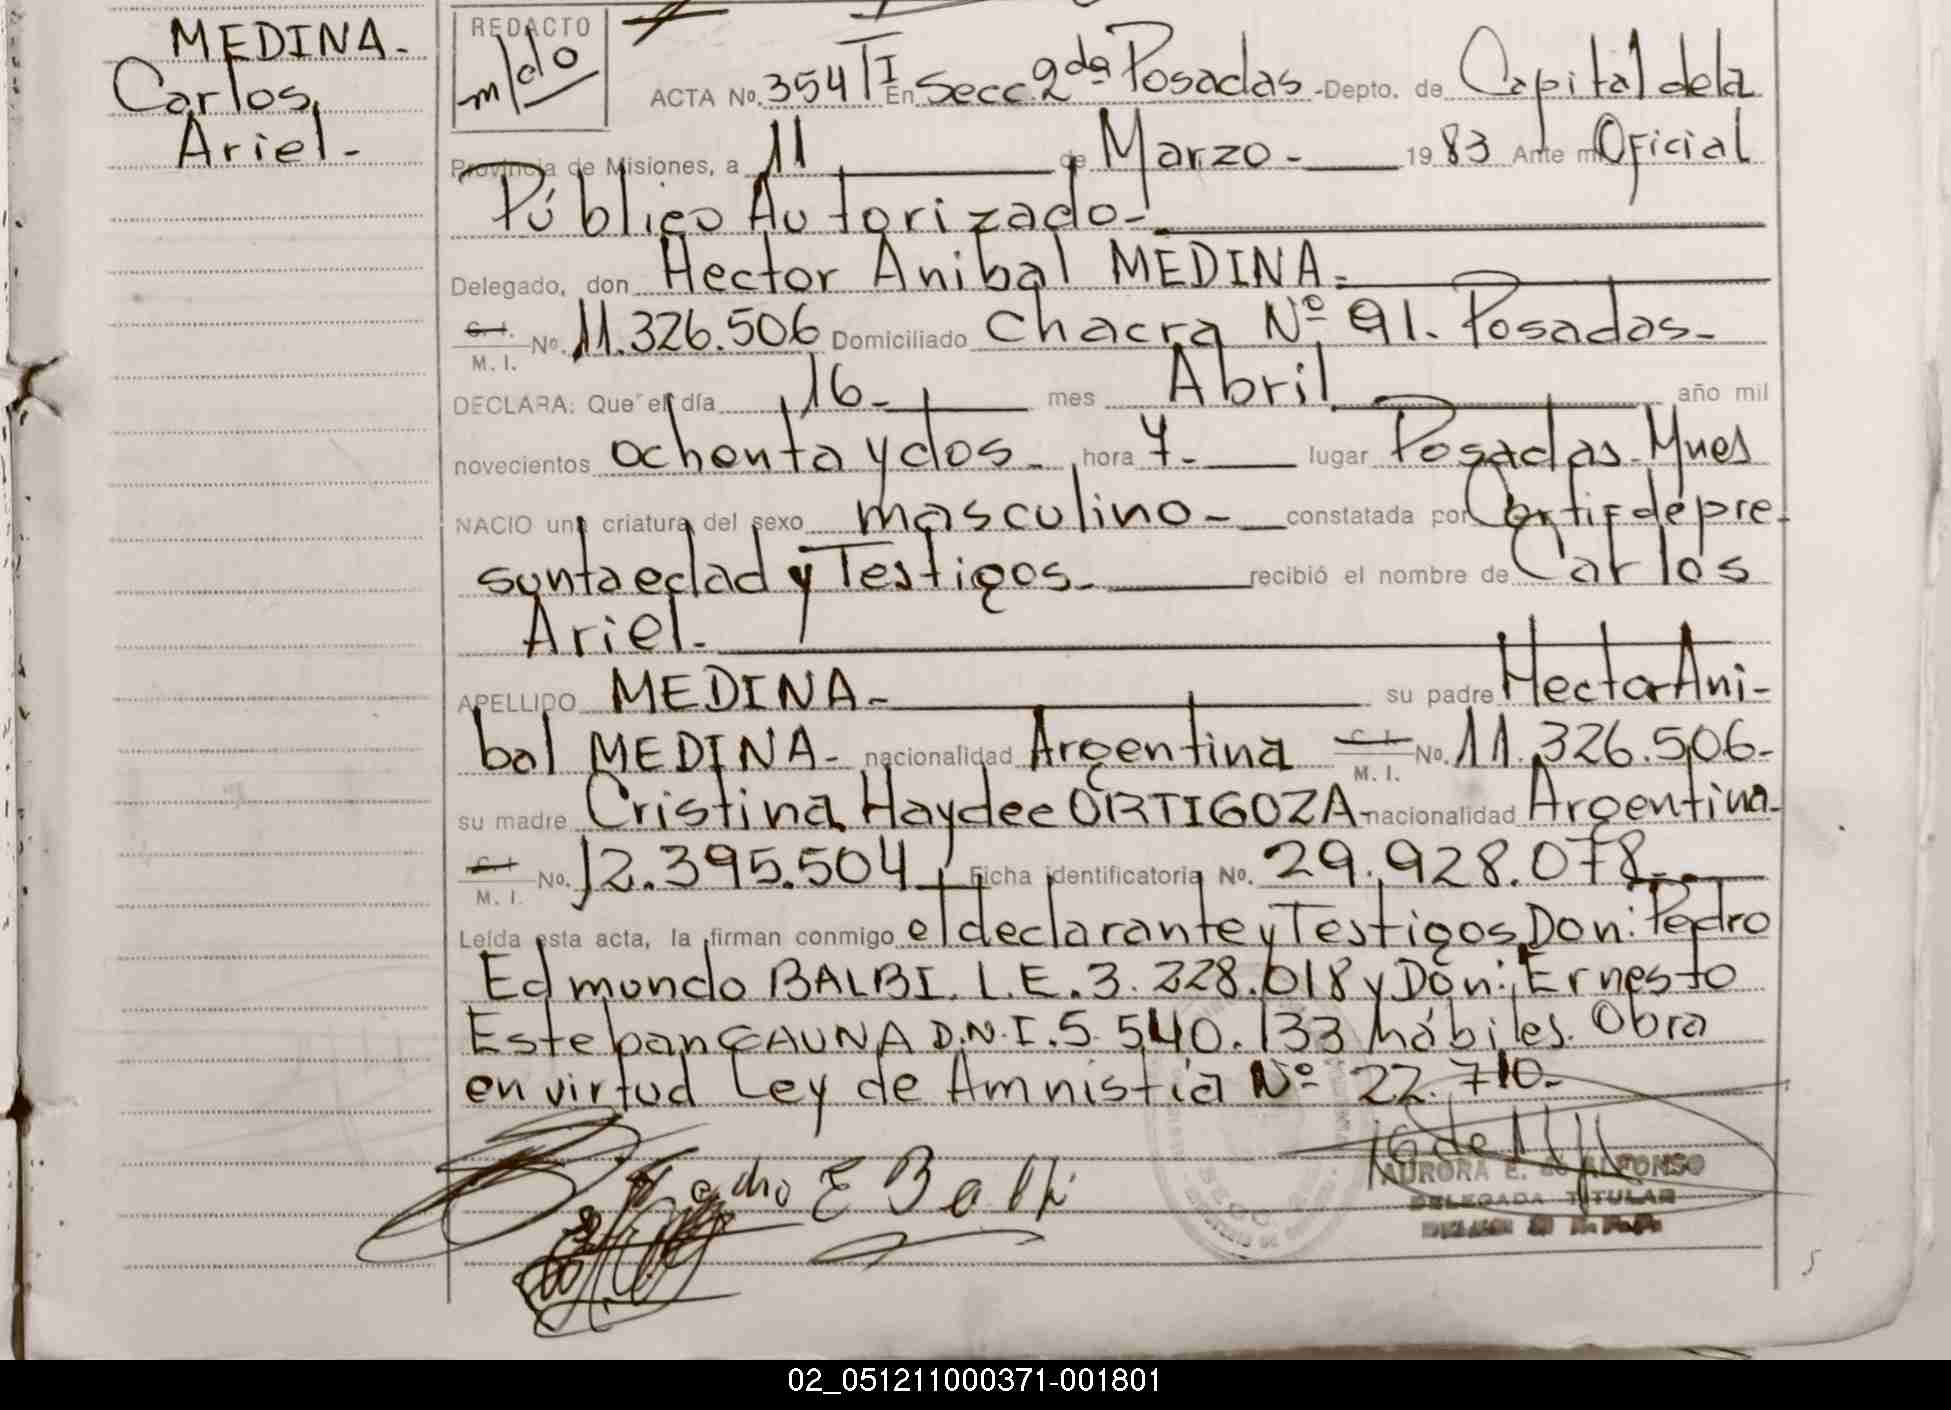 MEDINA-
Carlos
Ariel-
REDACTO
m/do
ACTA No. 354 TI En Secc. 2da Posadas -Depto. de Capital de la
Provincia de Misiones, a 11 de Marzo- 1983 Ante mi Oficial
Público Autorizado-
Delegado, don Hector Anibal MEDINA-
C. I. M. I. No. 11.326.506 Domiciliado Chacra Nº 91. Posadas-
DECLARA: Que el día 16- mes Abril año mil
novecientos ochenta y dos- hora 7- lugar Posadas-Mnes
NACIO una criatura del sexo masculino- constatada por Certif de pre-
sunta edad y Testigos- recibió el nombre de Carlos
Ariel-
APELLIDO MEDINA- su padre Hector Ani-
bal MEDINA- nacionalidad Argentina C. I. M. I. No. 11.326.506-
su madre Cristina Haydee ORTIGOZA- nacionalidad Argentina-
C. I. M. I. No. 12.395.504 Ficha identificatoria No. 29.928.078-
Leída esta acta, la firman conmigo el declarante y Testigos Don: Pedro
Edmundo BALBI. L.E. 3.228.018 y Don: Ernesto
Esteban GAUNA D.N.I. 5.540.133 hábiles. Obra
en virtud Ley de Amnistía Nº 22.710-
Pedro E Balbi
AURORA E. de ALFONSO
DELEGADA TITULAR
02_051211000371-001801